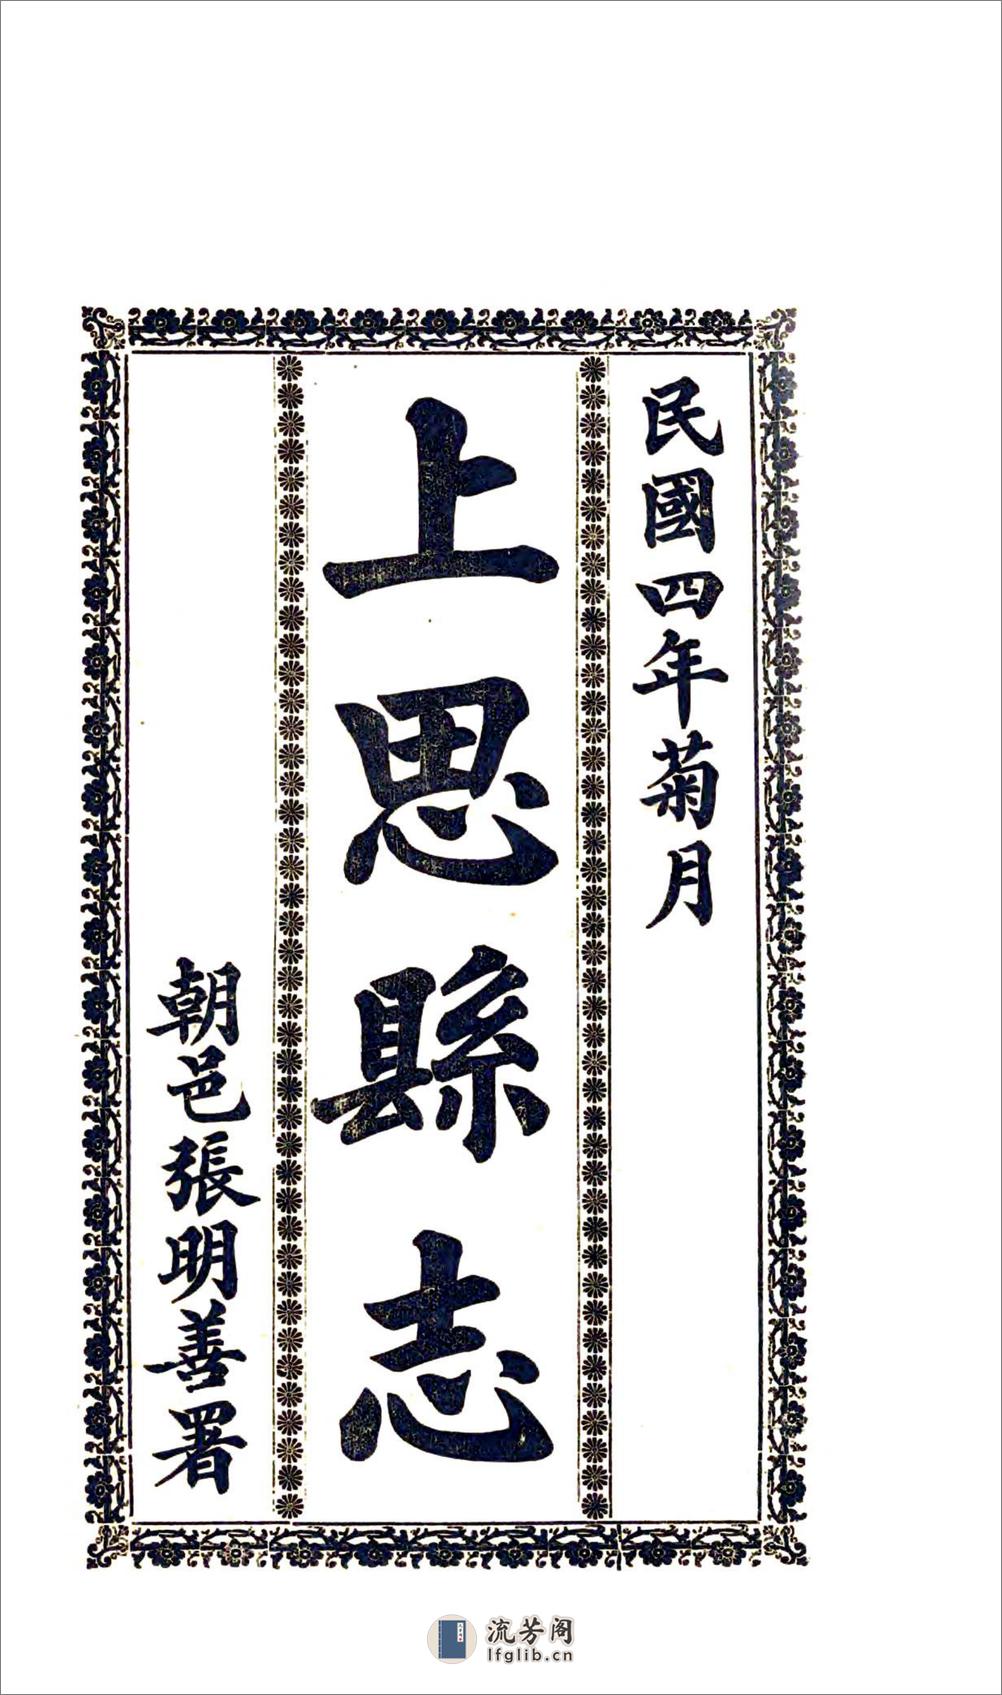 民國四年菊月
上思縣志
朝邑張明善署
流芳阁
lfglib.cn